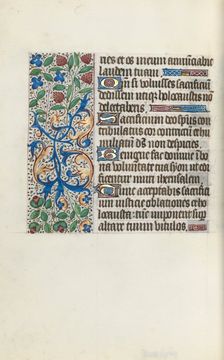 nes et os meum annunciabit
laudem tuam.
Quoniam si voluisses sacrificiū
dedissem utiqz holocaustis nō
delectaberis.
Sacrificium deo spūs con
tribulatus cor contritū et hu
miliatū ds non despicies.
Benigne fac domine i bo
na voluntate tua syon ut edi
ficentur muri iherusalem.
Tunc acceptabis sacrifici
um iusticie oblationes et ho
locausta tūc imponent sup
altare tuum vitulos.